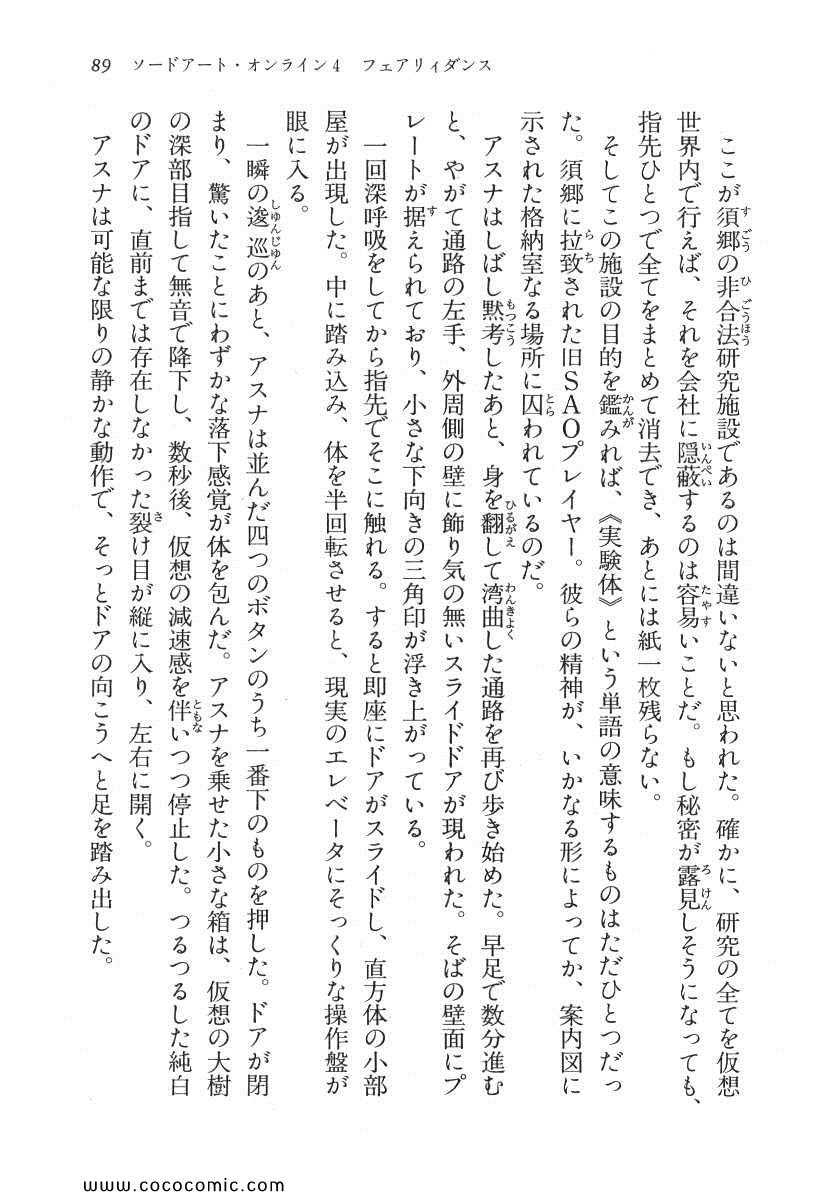 89　ソードアート・オンライン4　フェアリィダンス
　ここが須郷の非合法研究施設であるのは間違いないと思われた。確かに、研究の全てを仮想
世界内で行えば、それを会社に隠蔽するのは容易いことだ。もし秘密が露見しそうになっても、
指先ひとつで全てをまとめて消去でき、あとには紙一枚残らない。
　そしてこの施設の目的を鑑みれば、《実験体》という単語の意味するものはただひとつだっ
た。須郷に拉致された旧SAOプレイヤー。彼らの精神が、いかなる形によってか、案内図に
示された格納室なる場所に囚われているのだ。
　アスナはしばし黙考したあと、身を翻して湾曲した通路を再び歩き始めた。早足で数分進む
と、やがて通路の左手、外周側の壁に飾り気の無いスライドドアが現われた。そばの壁面にプ
レートが据えられており、小さな下向きの三角印が浮き上がっている。
　一回深呼吸をしてから指先でそこに触れる。すると即座にドアがスライドし、直方体の小部
屋が出現した。中に踏み込み、体を半回転させると、現実のエレベータにそっくりな操作盤が
眼に入る。
　一瞬の逡巡のあと、アスナは並んだ四つのボタンのうち一番下のものを押した。ドアが閉
まり、驚いたことにわずかな落下感覚が体を包んだ。アスナを乗せた小さな箱は、仮想の大樹
の深部目指して無音で降下し、数秒後、仮想の減速感を伴いつつ停止した。つるつるした純白
のドアに、直前までは存在しなかった裂け目が縦に入り、左右に開く。
　アスナは可能な限りの静かな動作で、そっとドアの向こうへと足を踏み出した。
www.cococomic.com